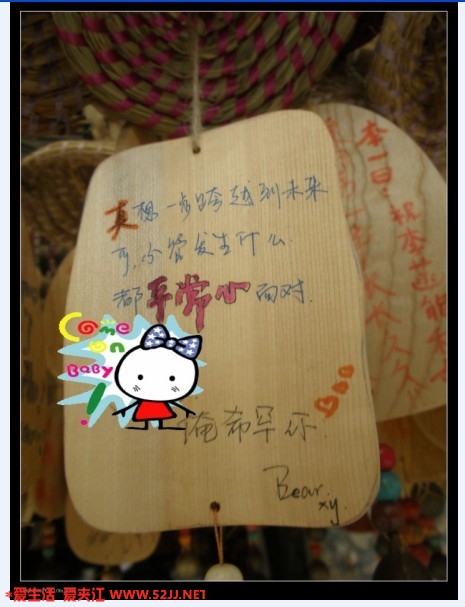 真想一步跨越到未来
可,不管发生什么
都平常心面对.
Come
on
BABY
!
俺希罕你.
Bear.
xy.
李一日:祝李
久久
*爱生活*爱夹江 WWW.52JJ.NET